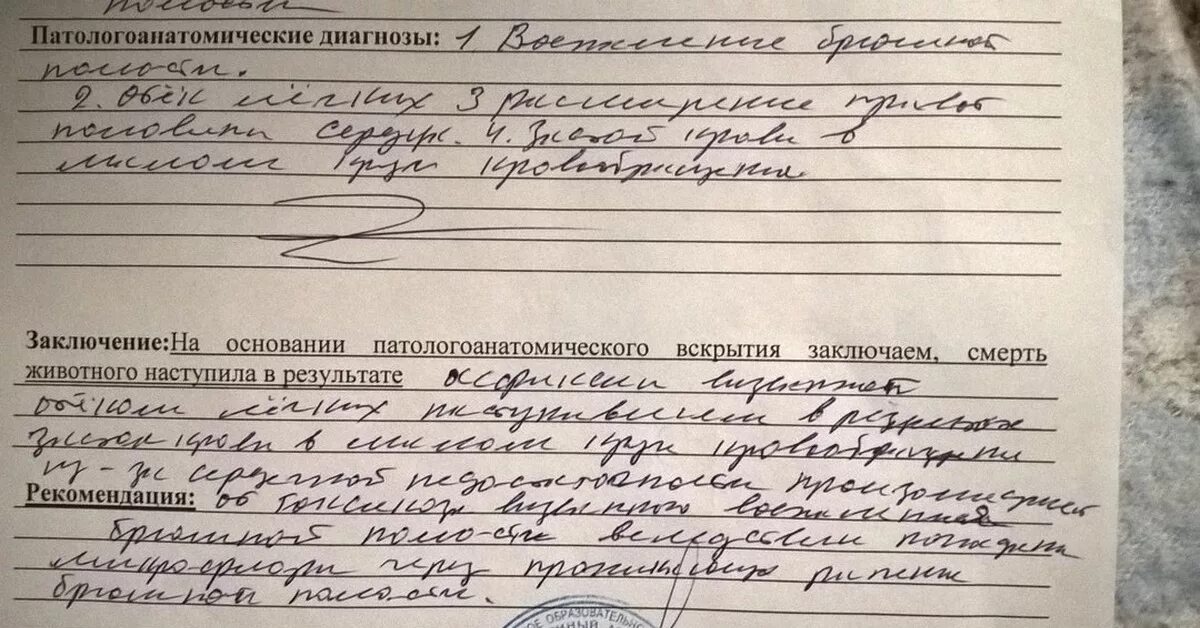 полости
Патологоанатомические диагнозы: 1 Воспаление брюшной
полости.
2. Отёк лёгких 3 расширение правой
половины сердца. 4. Застой крови в
малом круге кровообращения.
Заключение: На основании патологоанатомического вскрытия заключаем, смерть
животного наступила в результате асфиксии вызванной
отёком лёгких наступившем в результате
застоя крови в малом круге кровообращения
из-за сердечной недостаточности произошедшей
Рекомендация: от токсикоза вызванного воспалением
брюшной полости вследствии попадания
микрофлоры через проникающее ранение
брюшной полости.
ОБРАЗОВАТЕЛЬНО